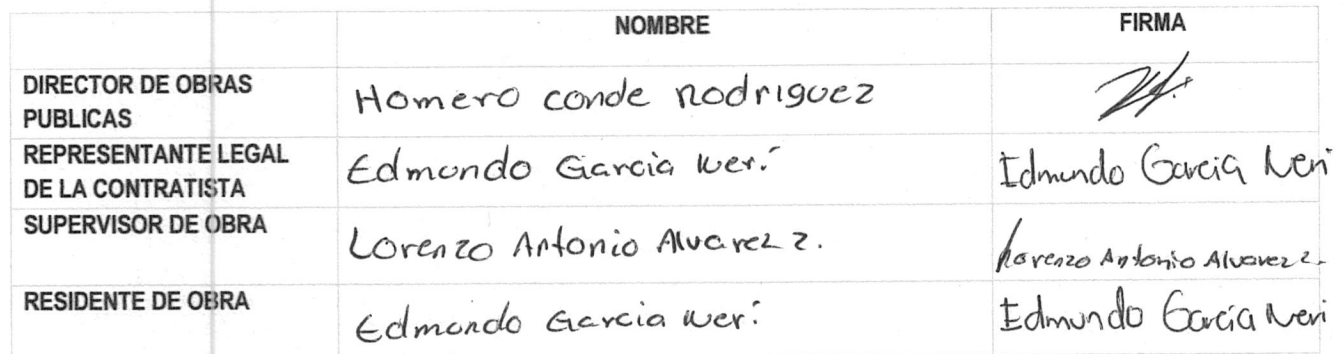 NOMBRE FIRMA
DIRECTOR DE OBRAS PUBLICAS Homero conde Rodriguez
REPRESENTANTE LEGAL DE LA CONTRATISTA Edmundo Garcia Neri Edmundo Garcia Neri
SUPERVISOR DE OBRA Lorenzo Antonio Alvarez z. Lorenzo Antonio Alvarez z.
RESIDENTE DE OBRA Edmundo Garcia Neri Edmundo García Neri